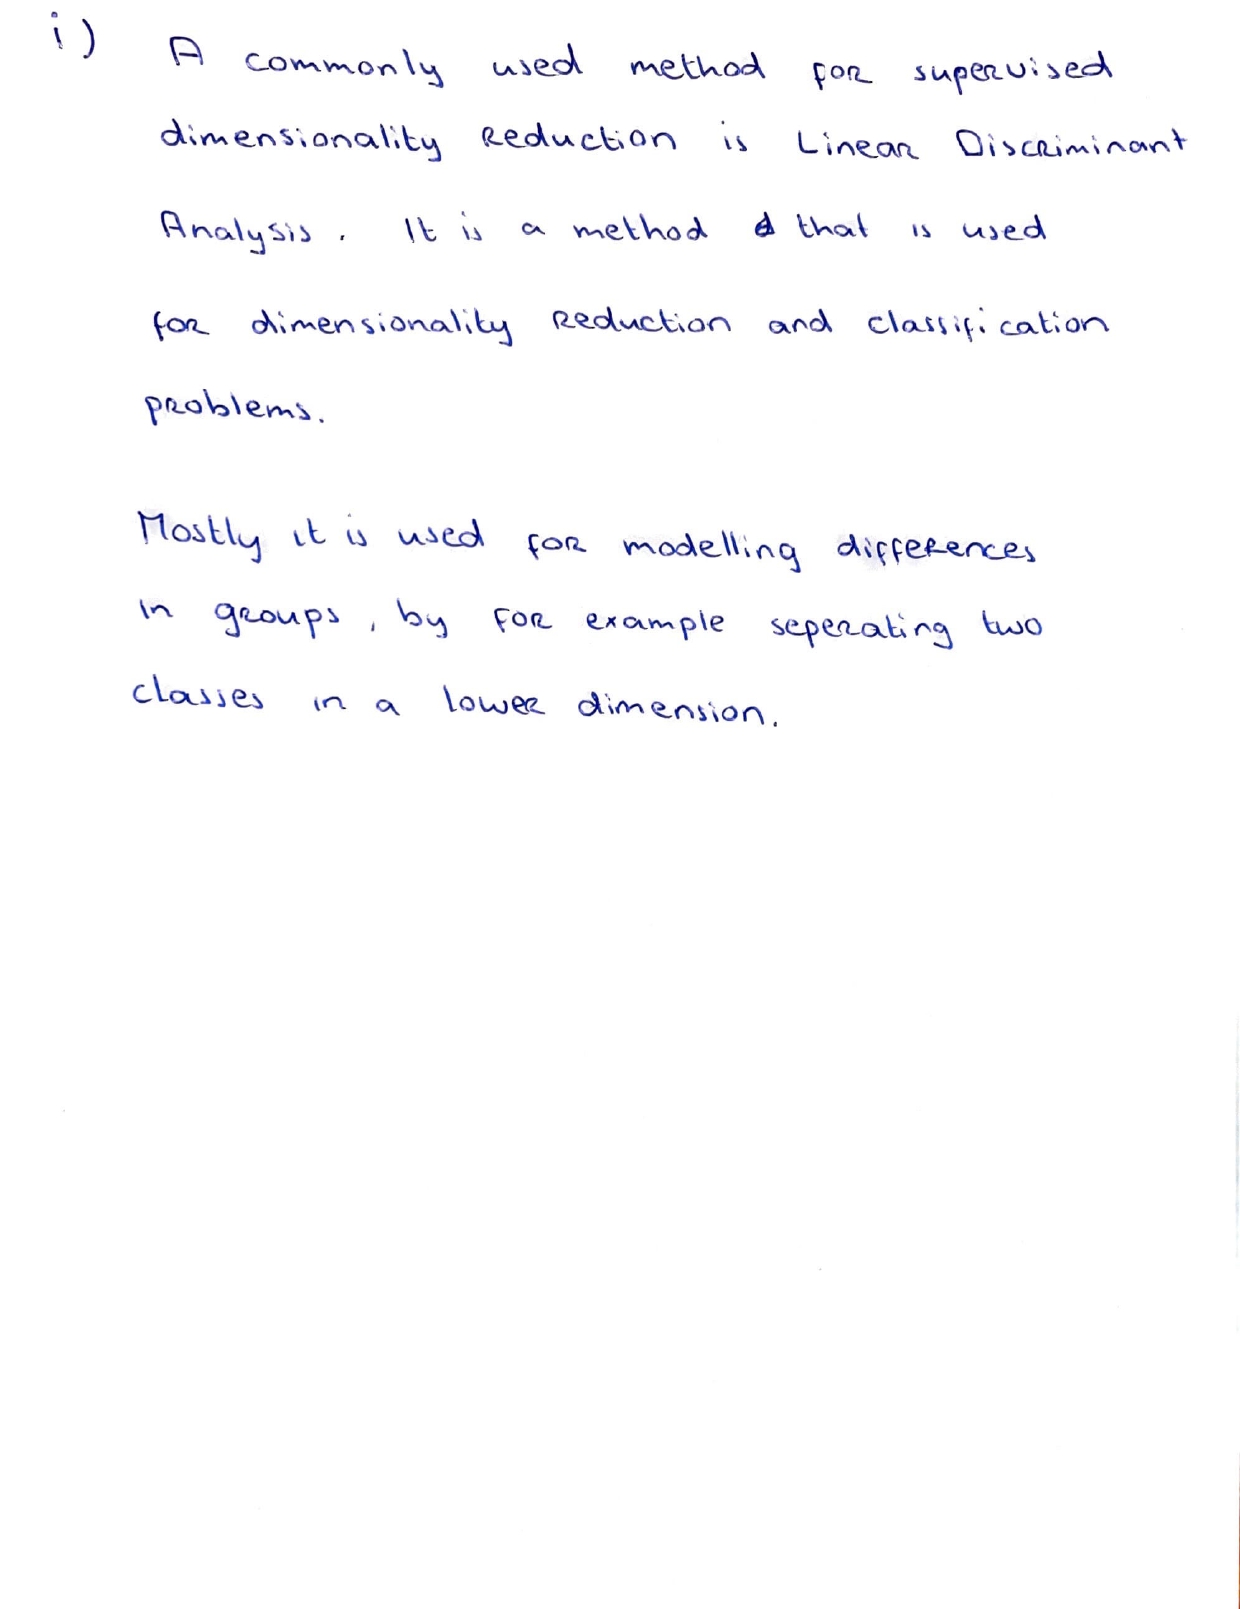 i) A commonly used method for supervised
dimensionality reduction is Linear Discriminant
Analysis. It is a method that is used
for dimensionality reduction and classification
problems.
Mostly it is used for modelling differences
in groups, by for example seperating two
classes in a lower dimension.